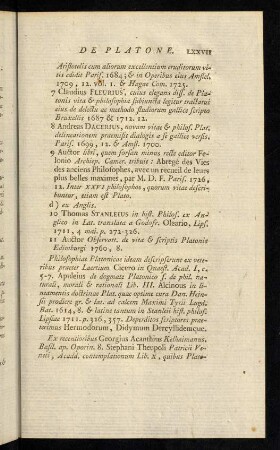 DE PLATONE. LXXVII
Aristotelis cum aliorum excellentium eruditorum vi-
tis edidit Paris. 1684; & in Operibus eius Amstel.
1709, 12. vol. 1. & Hagae Com. 1725.
7 Claudius FLEURIUS, cuius elegans diss. de Pla-
tonis vita & philosophia subiuncta legitur tractatui
eius de delectu ac methodo studiorum gallice scriptus
Bruxellis 1687 & 1712. 12.
8 Andreas DACERIUS, novam vitam & philos. Plat.
delineationem praemisit dialogis a se gallice versis,
Paris. 1699, 12. & Amst. 1700.
9 Auctor libri, quem forsan minus recte editor Fe-
lonio Archiep. Camer. tribuit: Abregé des Vies
des anciens Philosophes, avec un recueil de leurs
plus belles maximes, par M. D. F. Paris. 1726,
12. Inter XXVI philosophos, quorum vitas descri-
buntur, etiam est Plato.
d) ex Anglis.
10 Thomas STANLEIUS in hist. Philos. ex An-
glico in Lat. translata a Godofr. Oleario, Lips.
1711, 4 mai. p. 272-326.
11 Auctor Observatt. de vita & scriptis Platonis
Edinburgi 1760, 8.
Philosophiae Platonicae ideam descripserunt ex ve-
teribus praeter Laertium Cicero in Quaest. Acad. I, c.
5-7. Apuleius de dogmate Platonico s. de phil. na-
turali, morali & rationali Lib. III. Alcinous in li-
neamentis doctrinae Plat. quae optime cura Dan. Hein-
sii prodiere gr. & lat. ad calcem Maximi Tyrii Lugd.
Bat. 1614, 8. & latine tantum in Stanleii hist. philos.
Lipsiae 1711. p. 326, 357. Deperditos scriptores prae-
termitto Hermodorum, Didymum Dercyllidemque.
Ex recentioribus Georgius Acanthius Kelhaimanus,
Basil. ap. Oporin. 8. Stephani Theupoli Patricii Ve-
niti, Acad. contemplationum Lib. X, quibus Plato-